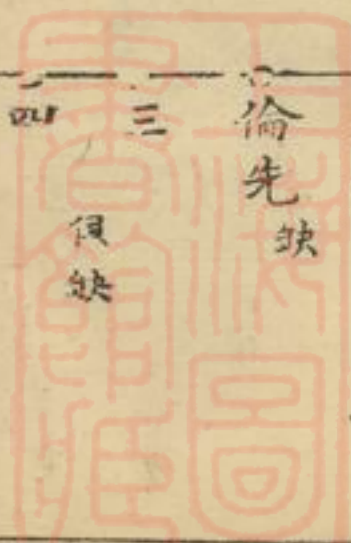 倫先缺
三
俱缺
四